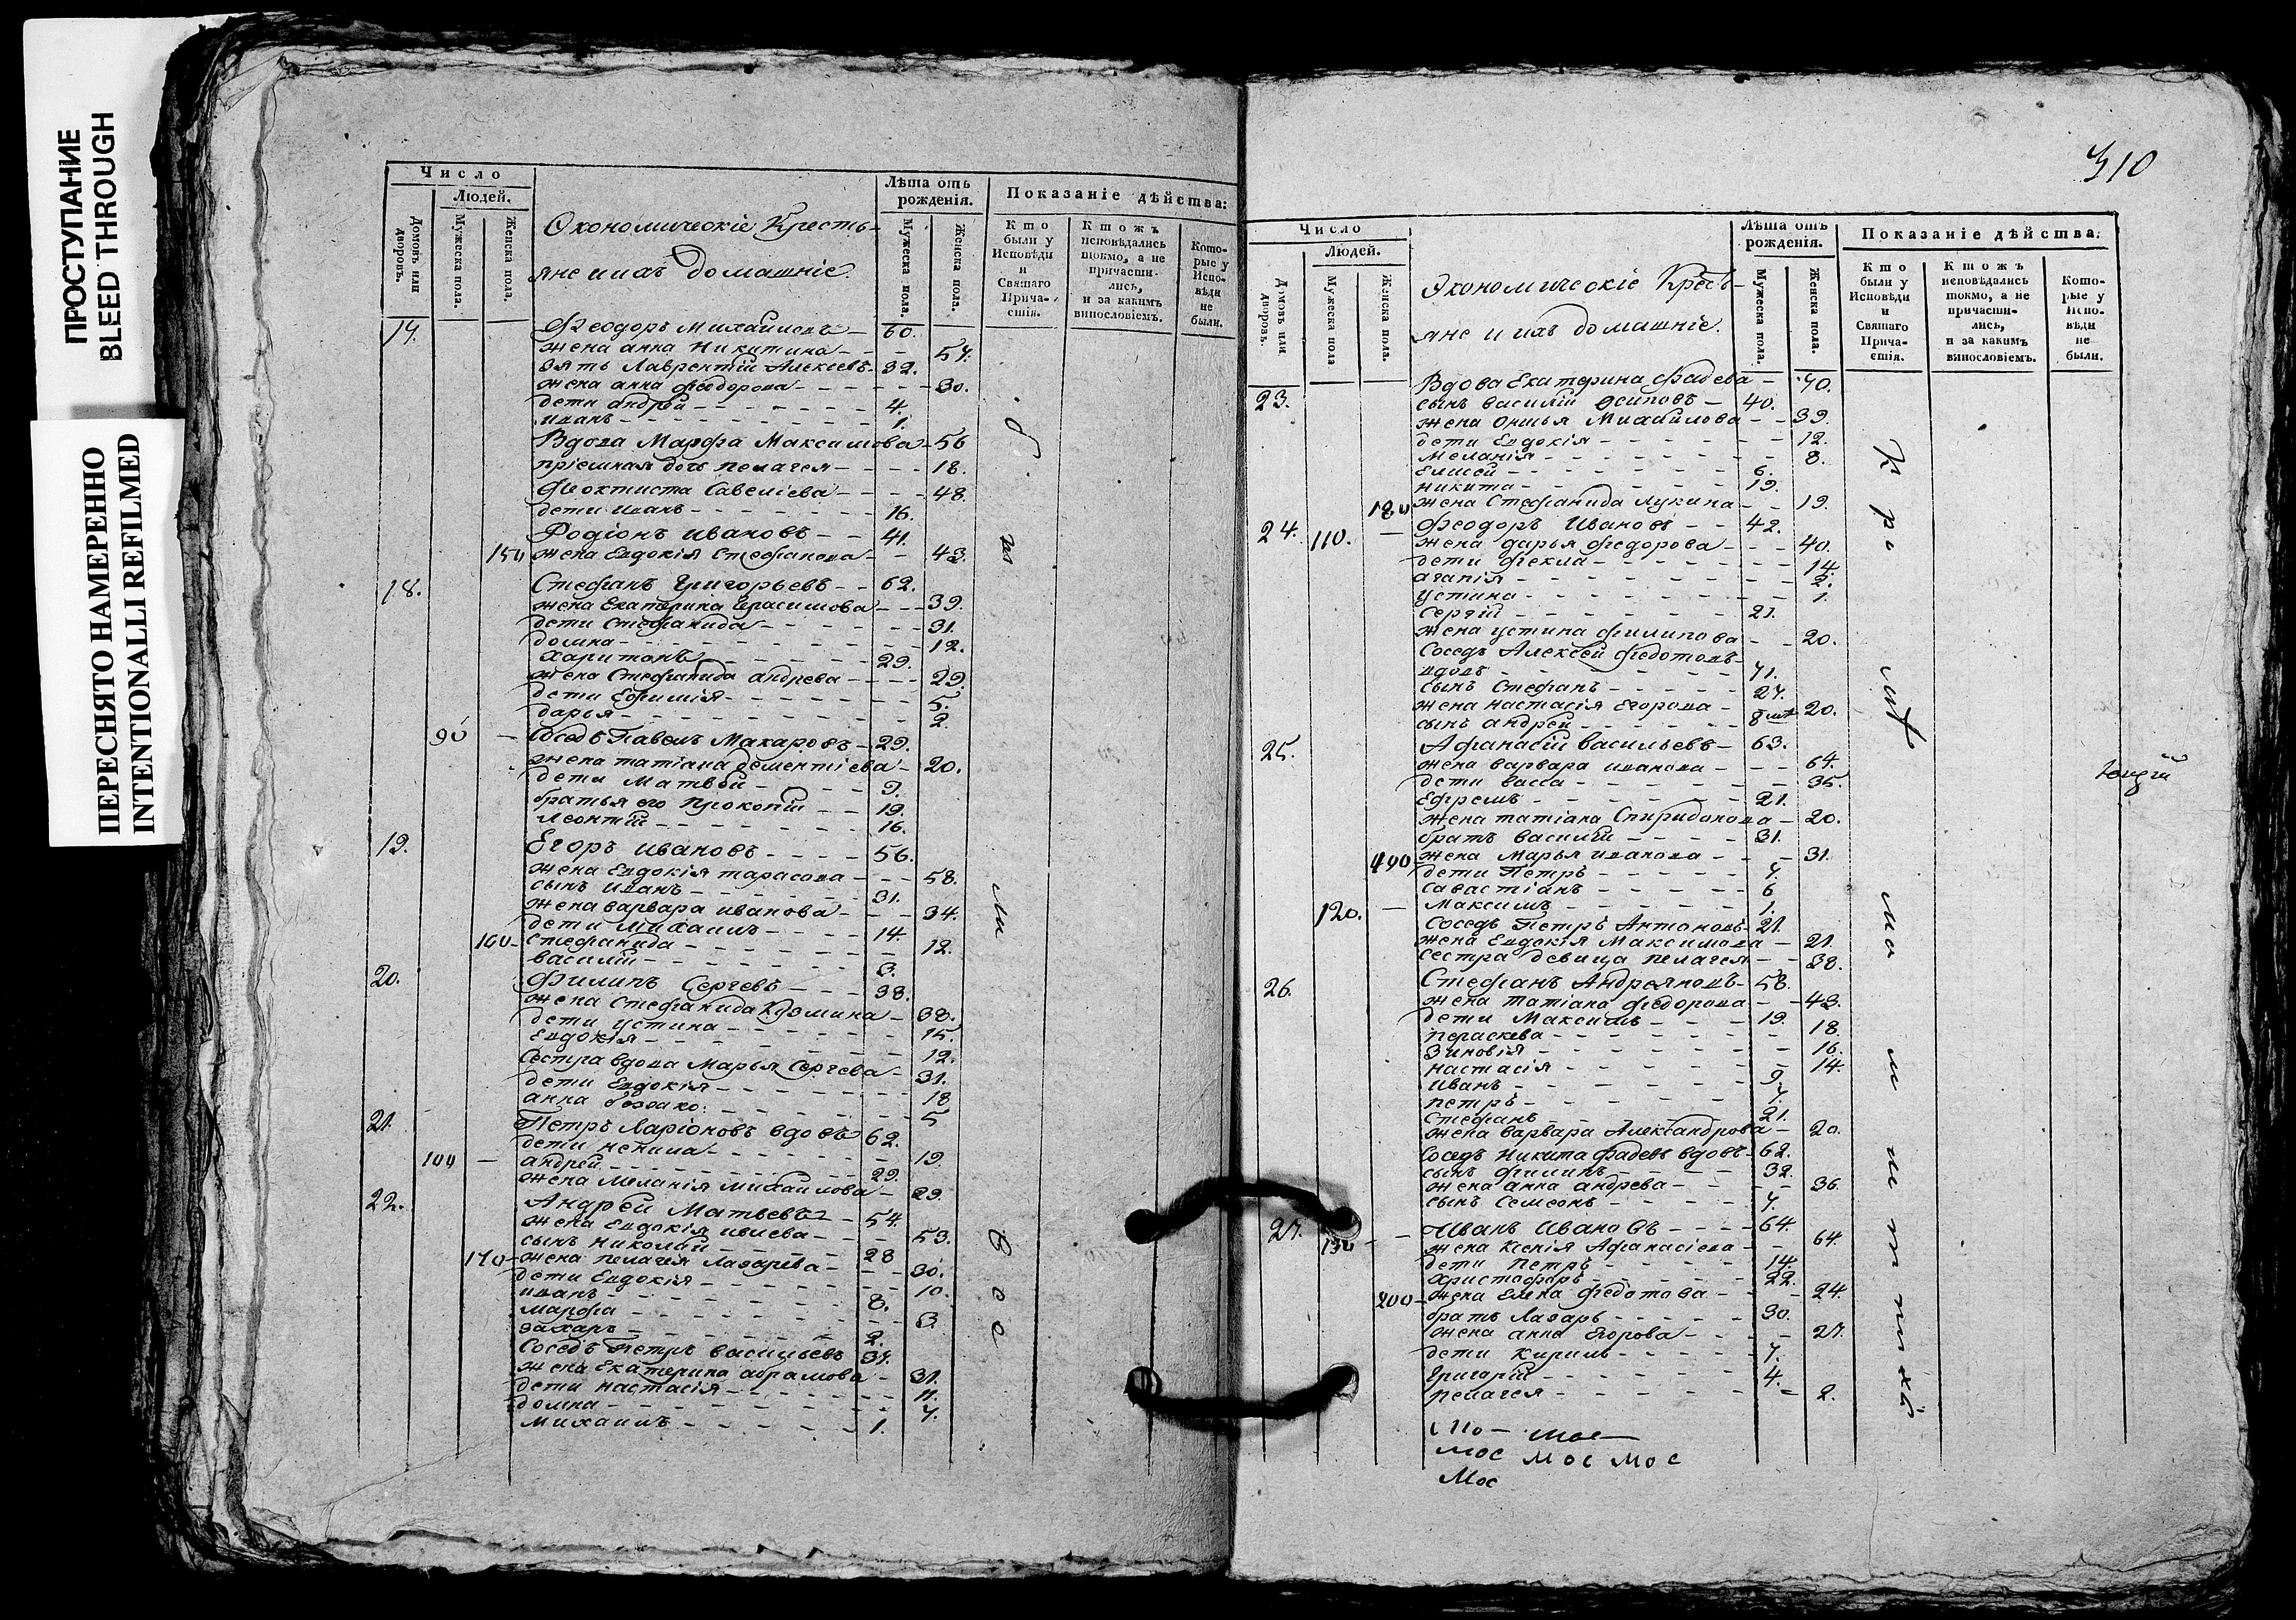 ПРОСТУПАНИЕ
BLEED THROUGH
ПЕРЕСНЯТО НАМЕРЕННО
INTENTIONALLI REFILMED
Число
Людей.
Домовъ или дворовъ.
Мужеска пола.
Женска пола.
Экономическіе Кресть-
яне и ихъ домашніе.
Лѣта отъ рожденія.
Мужеска пола.
Женска пола.
Показаніе дѣйства:
Кто были у Исповѣди и Святаго Прича-стія.
Ктожъ исповѣдались токмо, а не причасти-лись, и за какимъ винословіемъ.
Кото-рые у Испо-вѣди не были.
17. Феодоръ Михайловъ 60.
жена анна Никитина 57.
зять Лаврентій Алексеевъ 32.
жена анна феодорова 30.
дети андрей 4.
иванъ 1.
Вдова Марфа Максимова 56
пріемная дочь пелагея 18.
Феоктиста Савеліева 48.
дети иванъ 16.
Родіонъ ивановъ 41.
150 жена Евдокія Стефанова 43.
18. Стефанъ Григорьевъ 62.
жена Екатерина Герасимова 39.
дети Стефанида 31.
домна 12.
харитонъ 29.
жена Стефанида андреева 29.
дети Ефимія 5.
дарья 2.
90 Соседъ Павелъ Макаровъ 29.
жена татіана дементіева 20.
дети Матвей 9.
братья его Прокопій 19.
Леонтій 16.
19. Егоръ ивановъ 56.
жена Евдокія тарасова 58.
сынъ иванъ 31.
жена варвара иванова 34.
дети михаилъ 14.
160 Стефанида 12.
василій 3.
20. Филипъ Сергевъ 38.
жена Стефанида Кузмина 38.
дети устина 15.
Евдокія 12.
Сестра вдова Марья Сергева 31.
дети Евдокія 18
анна 5
21. Петръ Ларіоновъ вдовъ 62.
дети ненила 19.
100 андрей 29.
жена Меланія михайлова 29.
22. Андрей Матвевъ 54.
жена Евдокія 53.
сынъ николай 28
170 жена пелагея Лазарева 30.
дети Евдокія 10.
иванъ 8.
марфа 3.
захаръ 2.
Соседъ Петръ васильевъ 37.
жена Екатерина абрамова 31.
дети настасія 11.
домна 7.
михаилъ 1.
310
Число
Людей.
Домовъ или дворовъ.
Мужеска пола
Женска пола.
Экономическіе Кресть-
яне и ихъ домашніе.
Лѣта отъ рожденія.
Мужеска пола.
Женска пола.
Показаніе дѣйства:
Кто были у Исповѣди и Святаго Прича-стія.
Ктожъ исповѣдались токмо, а не причасти-лись, и за какимъ винословіемъ.
Кото-рые у Испо-вѣди не были.
Вдова Екатерина фадева 70.
23. сынъ василій осиповъ 40.
жена Михайлова 39.
дети Евдокія 12.
меланія 8.
Елисей 6.
никита 19.
180 жена Стефанида Лукина 19.
24. 110. Феодоръ Ивановъ 42.
жена дарья федорова 40.
дети фекла 14.
агапія 2.
устина 1.
Сергій 21.
жена устина филипова 20.
Соседъ Алексей федотовъ
вдовъ 71.
сынъ Стефанъ 27.
жена настасія Егорова 20.
сынъ андрей 8
25. Афанасій васильевъ 63.
жена варвара иванова 64.
дети васса 35.
Ефремъ 21.
жена татіана Спиридонова 20.
братъ василій 31.
190 жена Марья иванова 31.
дети Петръ 7.
савастіанъ 6
120. максимъ 1.
Соседъ Петръ Антоновъ 21.
жена Евдокія Максимова 21.
сестра девица пелагея 38.
26. Стефанъ Андреяновъ 58.
жена татіана федорова 43.
дети Максимъ 19.
пераскева 18.
Зиновія 16.
настасія 14.
иванъ 9.
петръ 7.
Стефанъ 21.
жена варвара Александрова 20.
Соседъ Никита Фадевъ вдовъ 62.
сынъ филипъ 32.
жена анна андрева 36.
сынъ Семеонъ 7.
27. 130 Иванъ Ивановъ 64.
жена Ксенія Афанасіева 64.
дети Петръ 14.
Христофоръ 22.
200 жена Елена федотова 24.
братъ Лазарь 30.
жена анна Егорова 27.
дети Кирилъ 7.
Григорій 4.
пелагея 2.
мос
мос мос мос
Мос